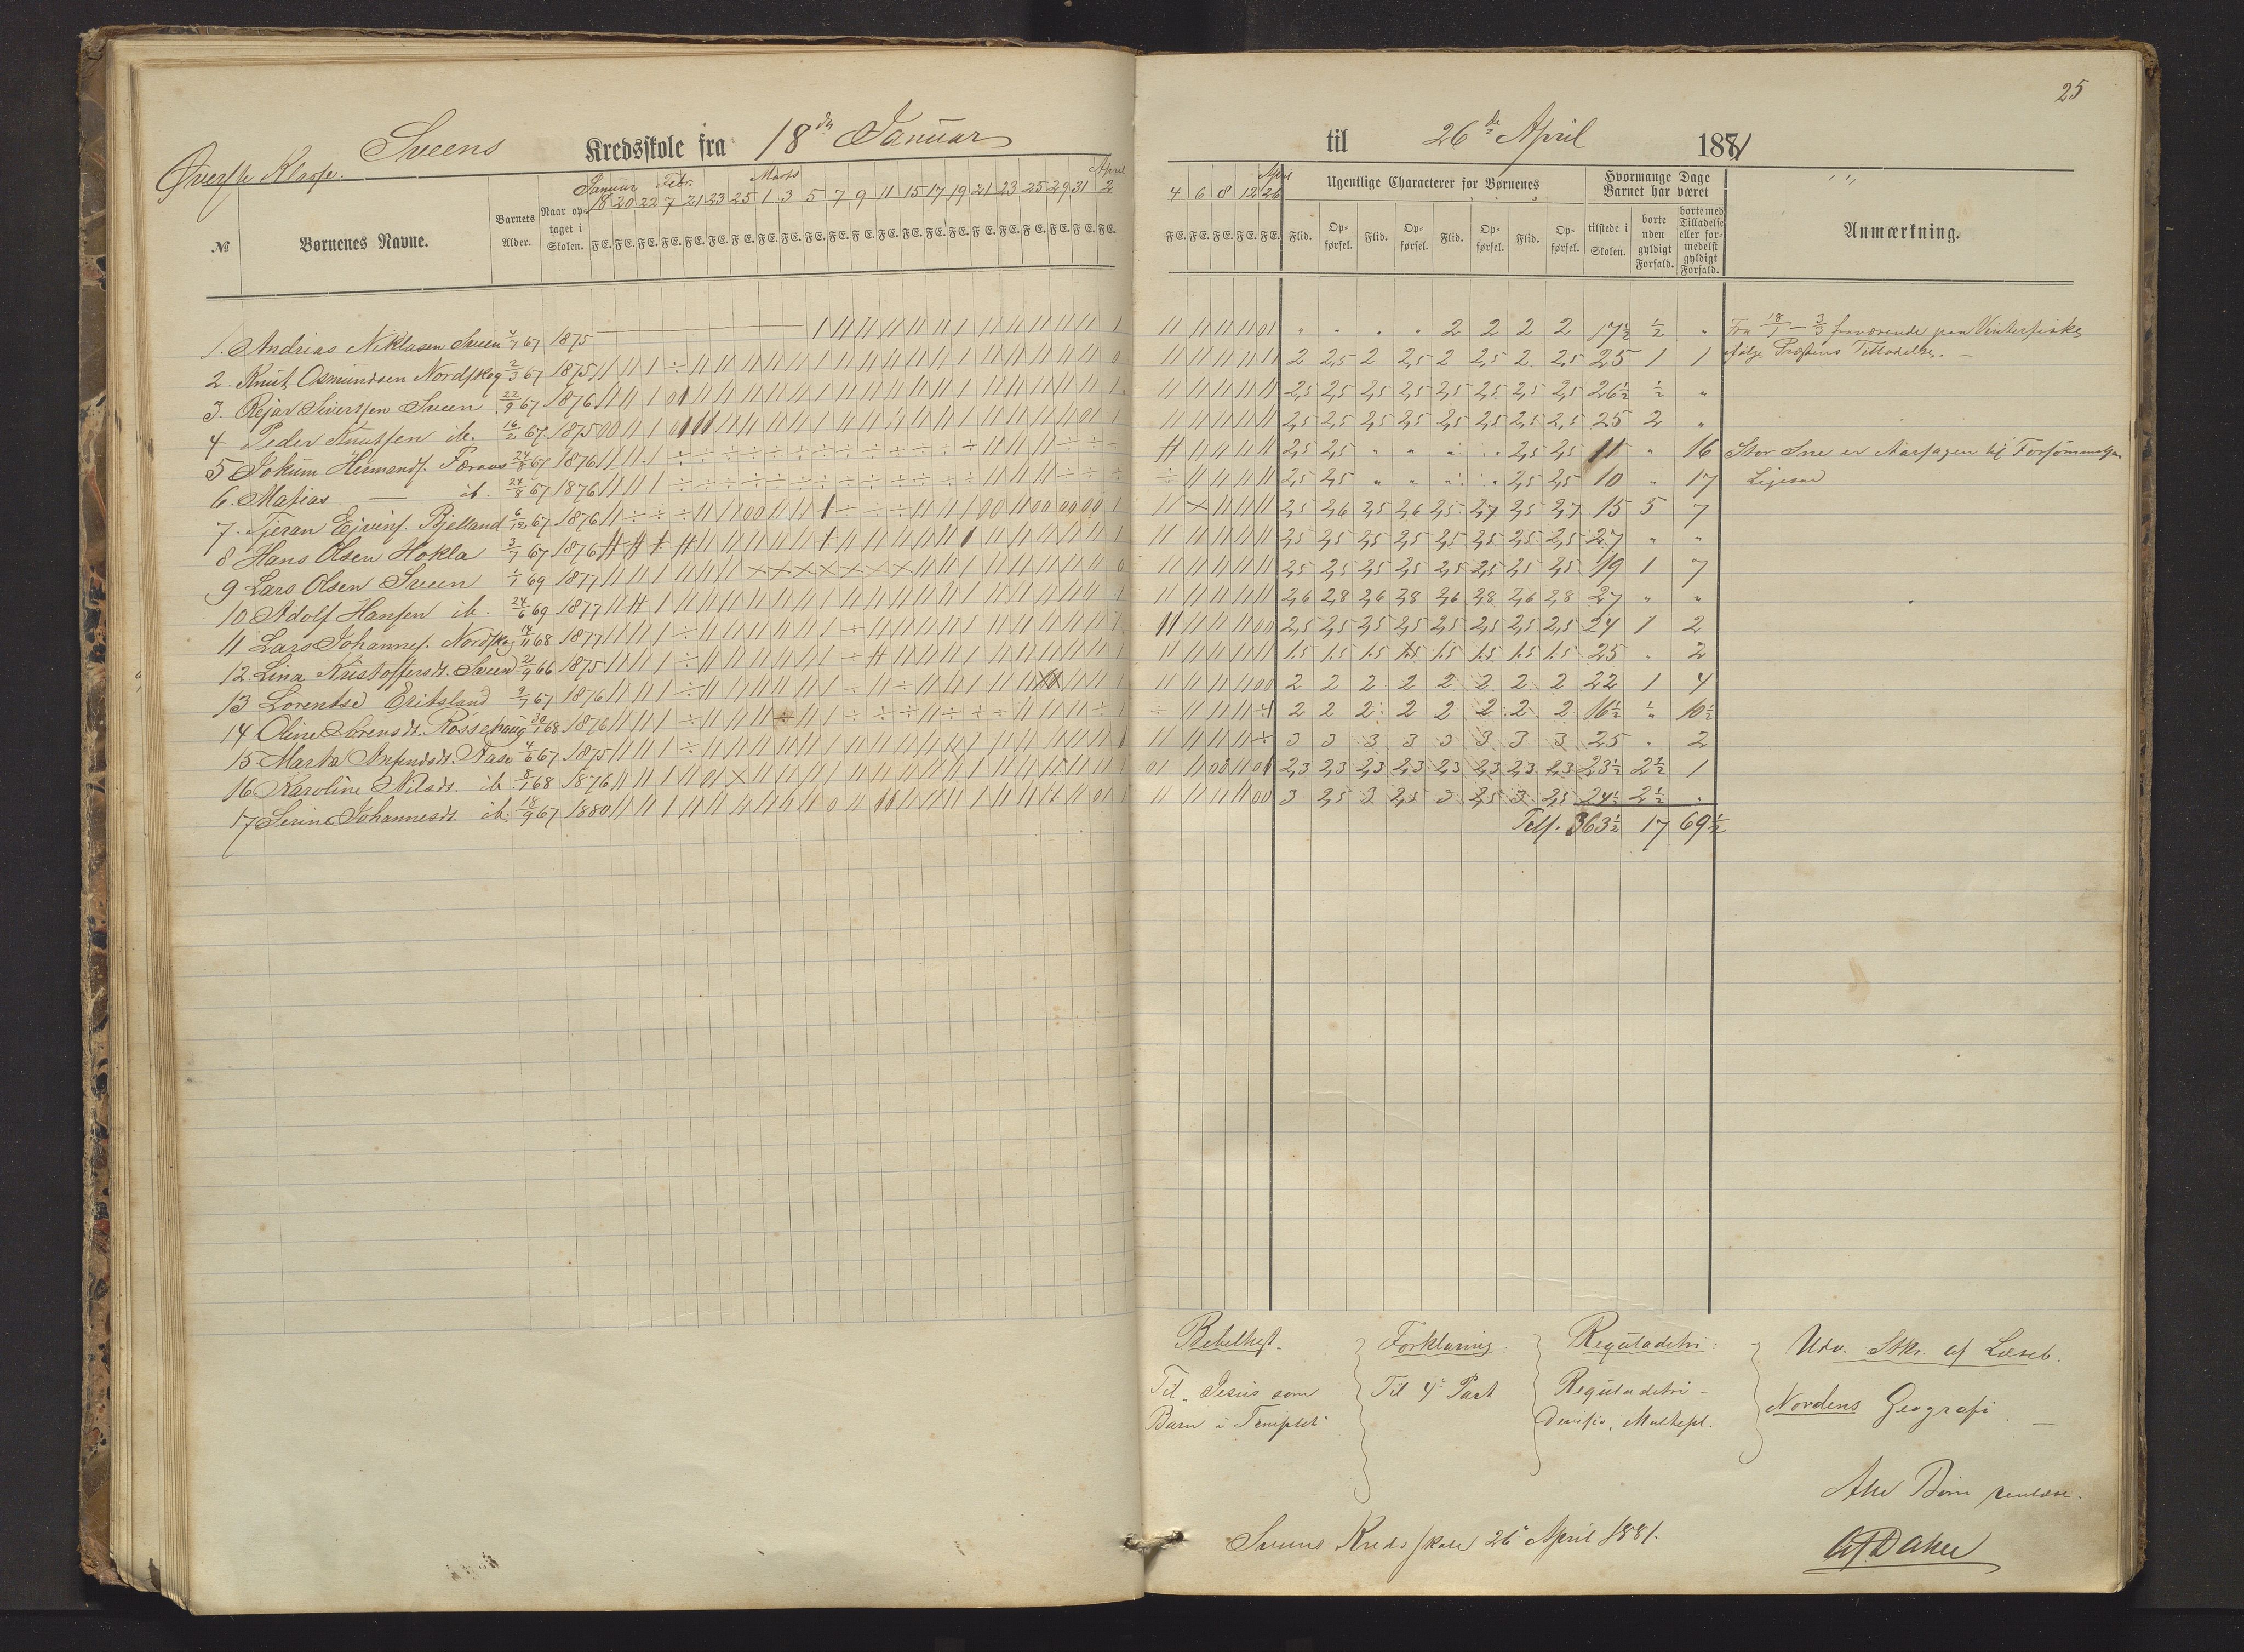 25
Sveens Kredsskole fra 18de Januar til 26de April 1881
Øverste Klasse.
Januar Febr. Marts April
18 20 22 7 21 23 25 1 3 5 7 9 11 15 17 19 21 23 25 29 31 2
April
4 6 8 12 26
№ Børnenes Navne. Barnets Alder. Naar optaget i Skolen. F E. F E. F E. F E. F E. F E. F E. F E. F E. F E. F E. F E. F E. F E. F E. F E. F E. F E. F E. F E. F E. F E.
F E. F E. F E. F E. F E. Ugentlige Characterer for Børnenes Flid. Opførsel. Flid. Opførsel. Flid. Opførsel. Flid. Opførsel. Hvormange Dage Barnet har været tilstede i Skolen. borte uden gyldigt Forfald. borte med Tilladelse eller formedelst gyldigt Forfald. Anmærkning.
1. Andrias Niklasen Sveen 4/7 67 1875 " " " " 2 2 2 2 17½ ½ " Fra 18/1 – 3/3 fraværende paa Vinterfiske
2. Knut Osmundsen Nordskog 2/3 67 1875 2 2,5 2 2,5 2 2,5 2 2,5 25 1 1 ifølge Præstens Tilladelse. –
3. Rejar Sivertsen Sveen 22/9 67 1876 2,5 2,5 2,5 2,5 2,5 2,5 2,5 2,5 26½ ½ "
4 Peder Knutsen ib. 16/2 67 1875 2,5 2,5 2,5 2,5 2,5 2,5 2,5 2,5 25 2 "
5 Jokum Hermands. 24/8 67 1876 2,5 2,5 " " " " 2,5 2,5 11 " 16 Stor Sne er Aarsagen til Forsømmelsen
6. Matias — ib. 24/8 67 1876 2,5 2,5 " " " " 2,5 2,5 10 " 17 Ligesaa
7. Tjeran Ejvins. Bjelland 6/12 67 1876 2,5 2,6 2,5 2,6 2,5 2,7 2,5 2,7 15 5 7
8 Hans Olsen Hokla 3/7 67 1876 2,5 2,5 2,5 2,5 2,5 2,5 2,5 2,5 27 " "
9 Lars Olsen Sveen 1/1 69 1877 2,5 2,5 2,5 2,5 2,5 2,5 2,5 2,5 19 1 7
10 Adolf Hansen ib. 24/6 69 1877 2,6 2,8 2,6 2,8 2,6 2,8 2,6 2,8 27 " "
11 Lars Johannes. Nordskog 14/11 68 1877 2,5 2,5 2,5 2,5 2,5 2,5 2,5 2,5 24 1 2
12. Lina Kristoffersdt. Sveen 21/9 66 1875 1.5 1.5 1.5 1.5 1.5 1.5 1.5 1.5 25 " 2
13 Lorentse Eritsland 9/7 67 1876 2 2 2 2 2 2 2 2 22 1 4
14 Oline Sørensdt. Rossehaug 30/1 68 1876 2 2 2 2 2 2 2 2 16½ ½ 10½
15 Marta 4/6 67 1875 3 3 3 3 3 3 3 3 25 " 2
16 Karoline Nilsdt. ib 8/1 68 1876 2,3 2,3 2,3 2,3 2,3 2,3 2,3 2,3 23½ 2½ 1
17 Serine Johannesdt. ib. 18/9 67 1880 3 2,5 3 2,5 3 2,5 3 2,5 24½ 2½ "
Tils. 363½ 17 69½
Bibelhist. Forklaring: Regūladetri: Udv. Stkr. af Læseb.
Til „Jesus som Til 4de Part Regūladetri – Nordens Geografi –
Barn i Templet" Division, Multipl.
Alle Børn
Sveens Kredsskole 26de April 1881.